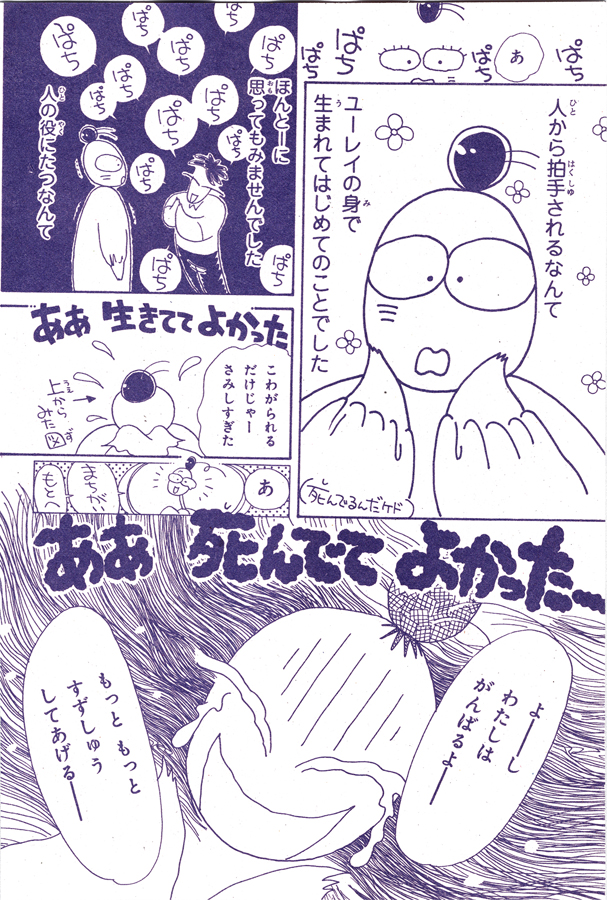 ぱち
ぱち
あ
ぱち
ぱち
人から拍手されるなんて
ひと
はくしゅ
ユーレイの身で
み
生まれてはじめてのことでした
う
(死んでるんだケド)
し
ぱち
ぱち
ぱち
ぱち
ぱち
ぱち
ぱち
ぱち
ぱち
ぱち
ぱち
ぱち
ぱち
ほんとーに
思ってもみませんでした
おも
人の役にたつなんて
ひと
やく
ああ 生きてて よかった
こわがられる
だけじゃー
さみしすぎた
上から
うえ
みた図
ず
あ
まちがい
もとへ
ああ 死んでて よかったー
し
よーーし
わたしは
がんばるよーー
もっと もっと
すずしゅう
してあげるーー